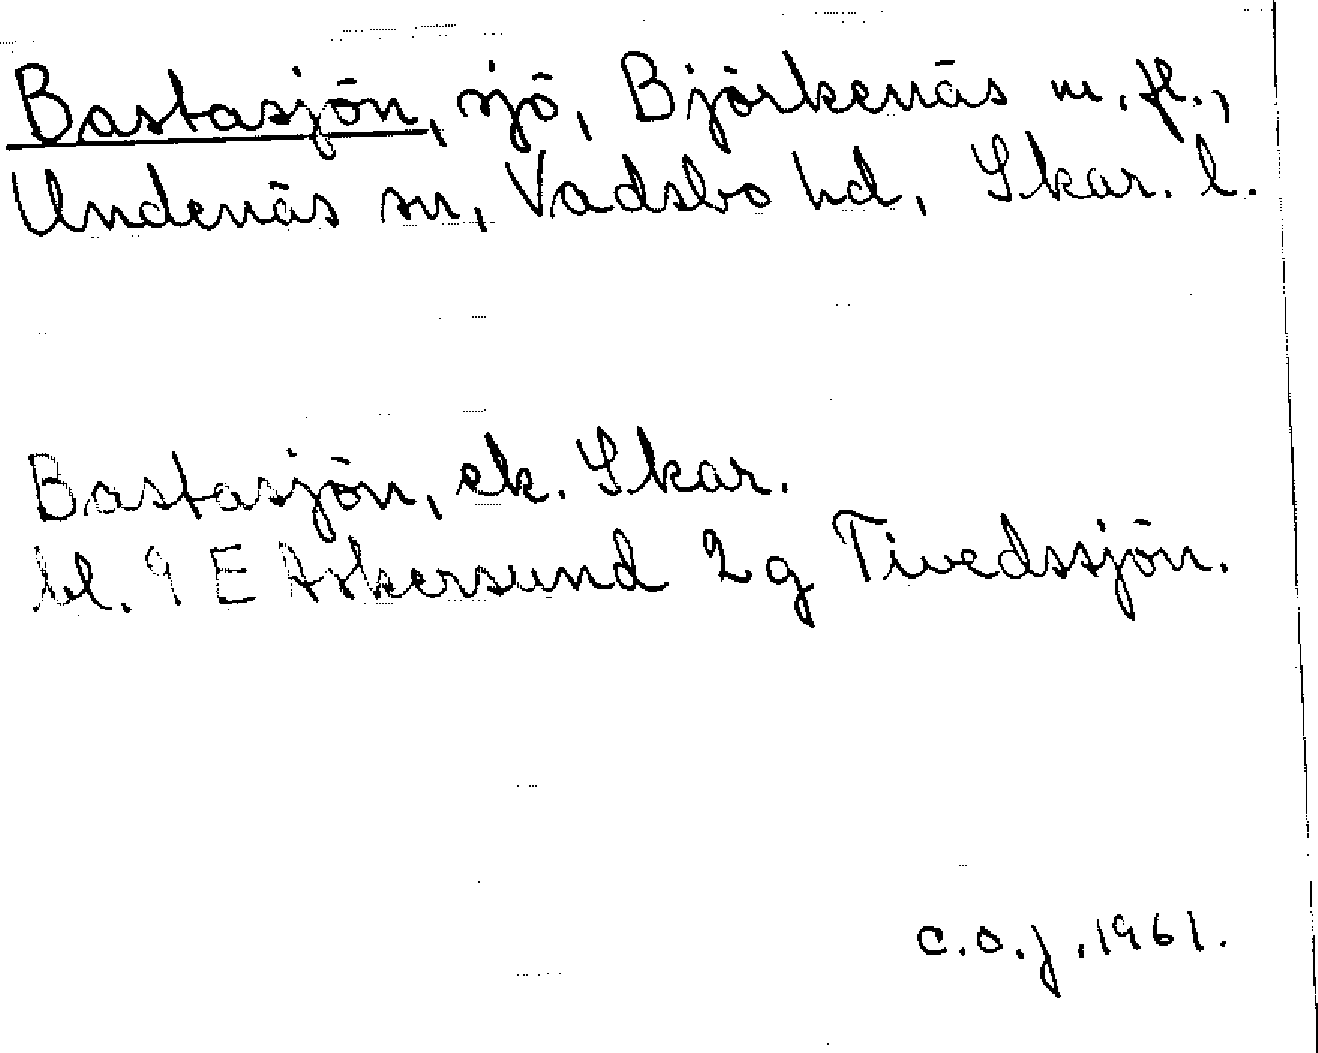 Bastasjön, sjö, Björkenäs m. fl.,
Undenäs sn, Vadsbo hd, Skar. l.
Bastasjön, ek. Skar.
bl. 9 E Askersund 2 g Tivedssjön.
C.O.J. 1961.